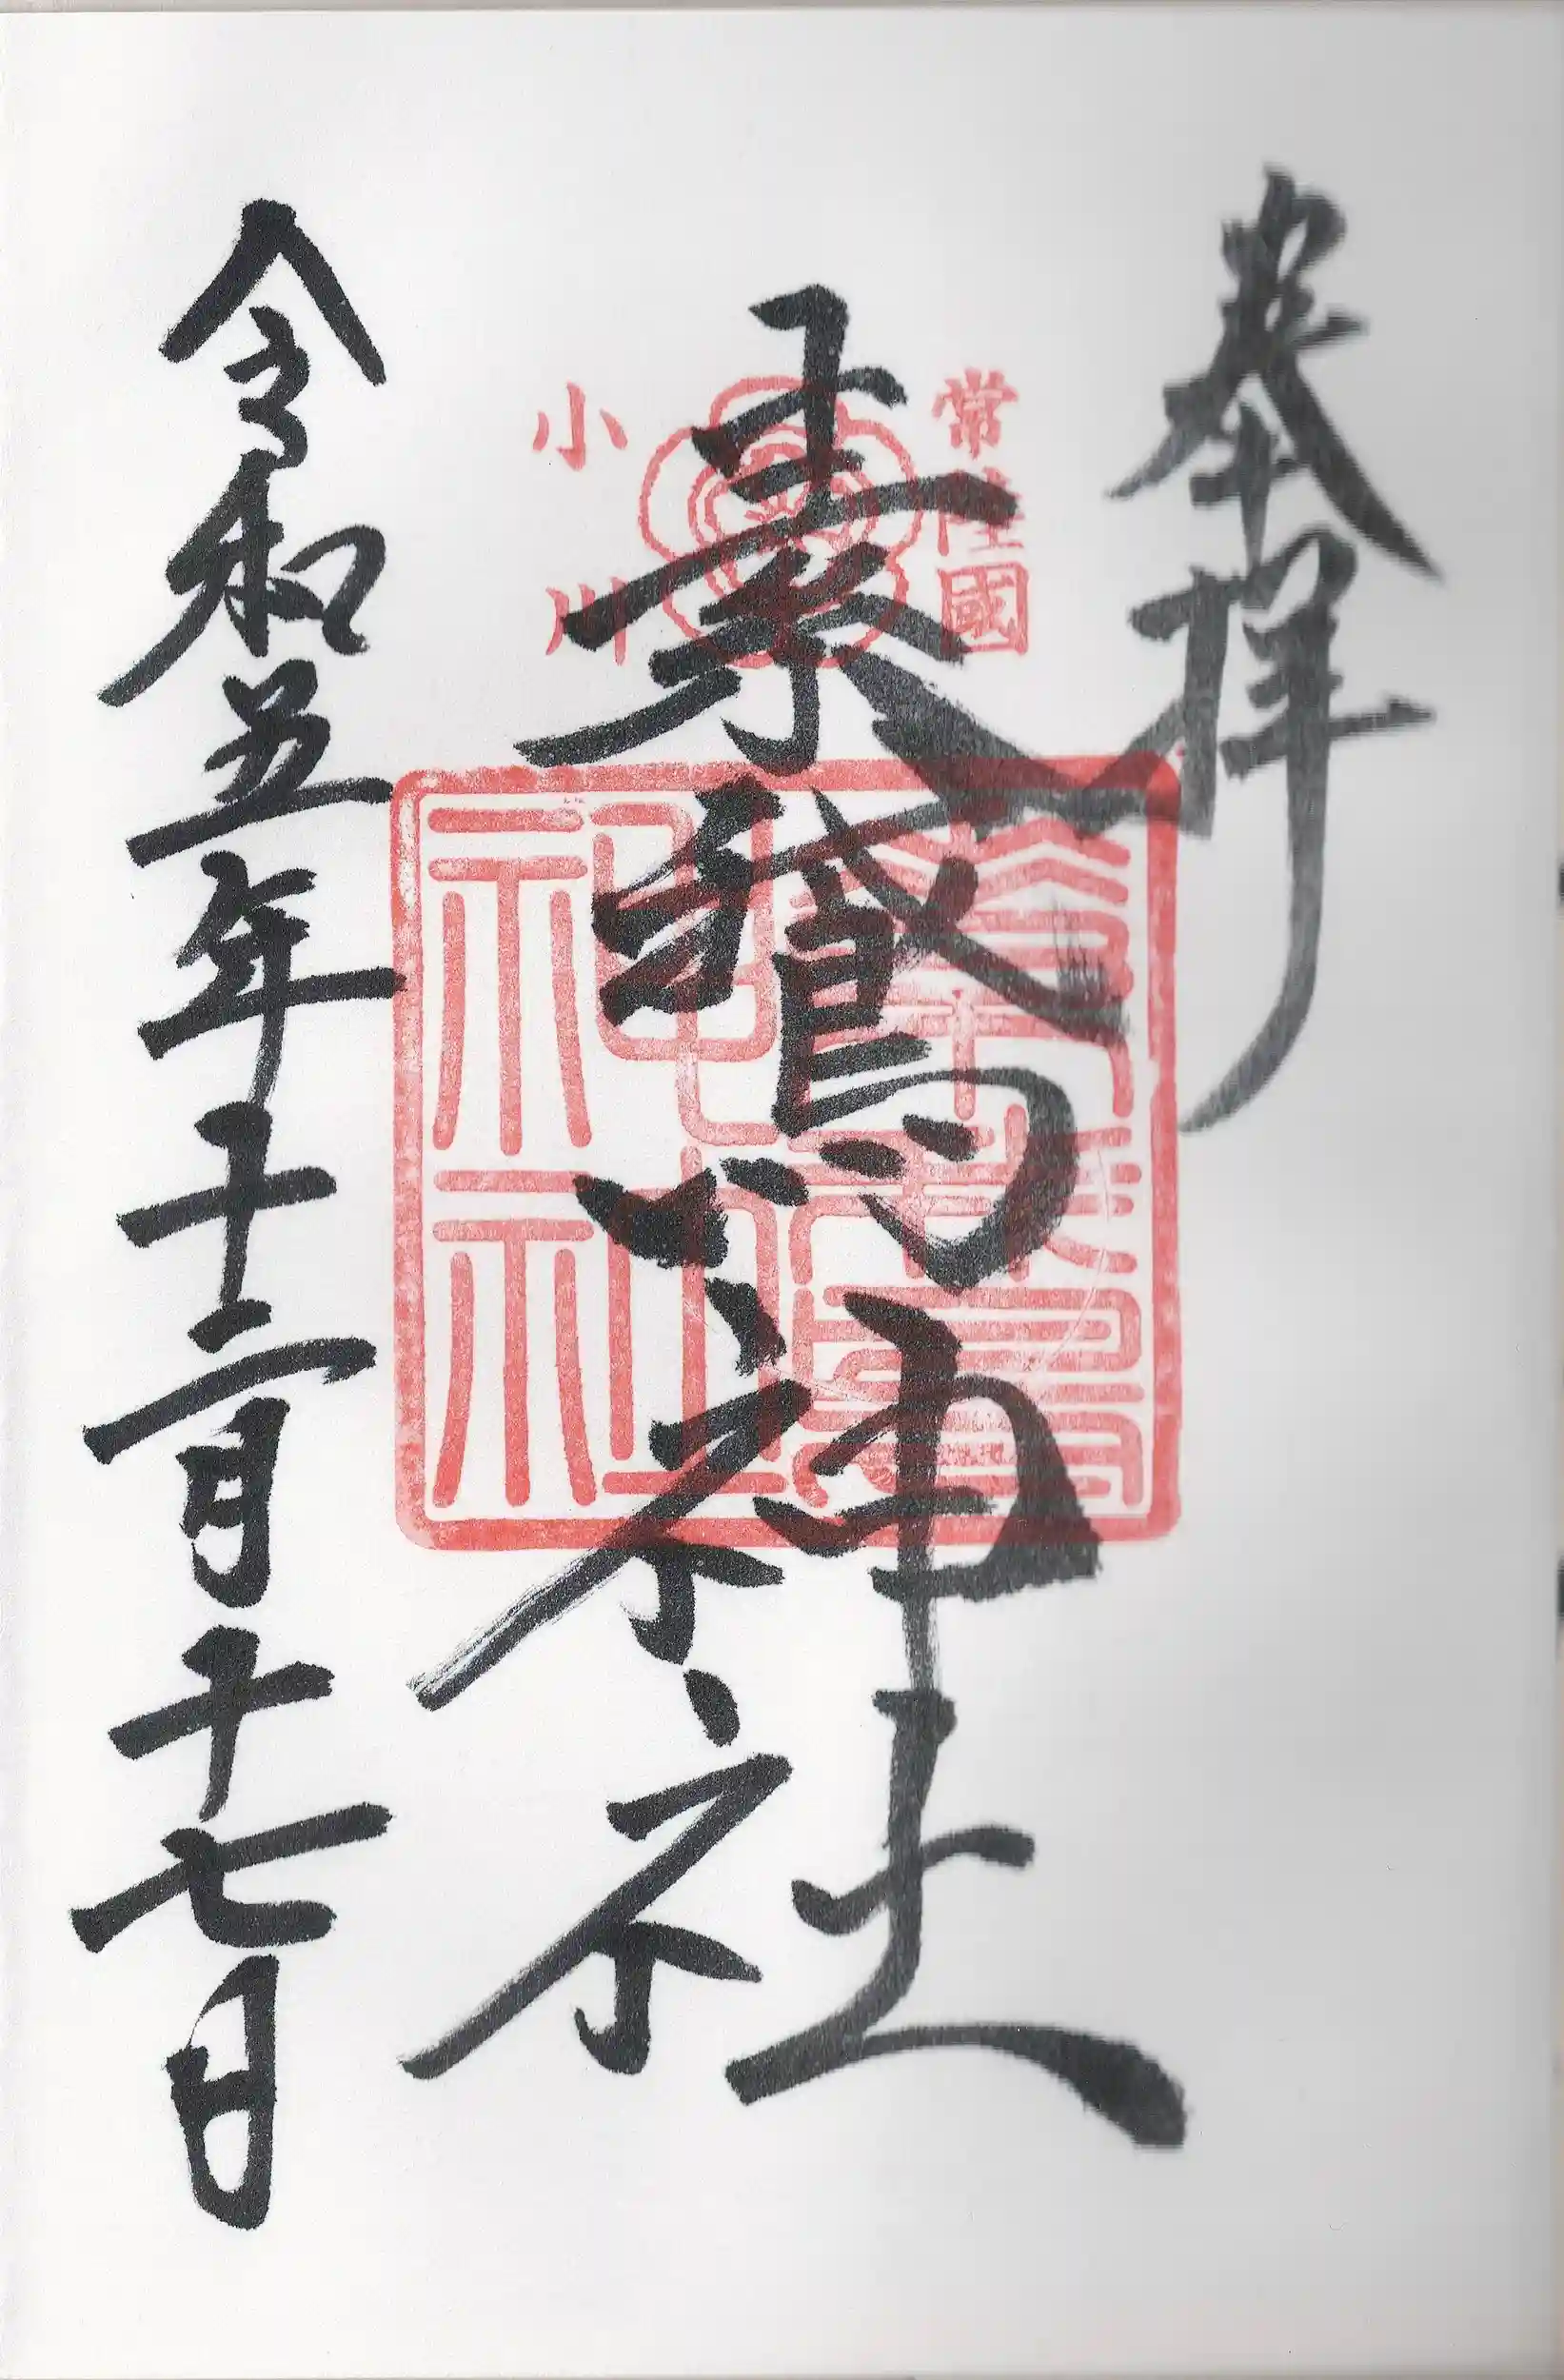 奉拝
常陸國
素鵞神社
小川
素鵞神社
令和五年十二月十七日